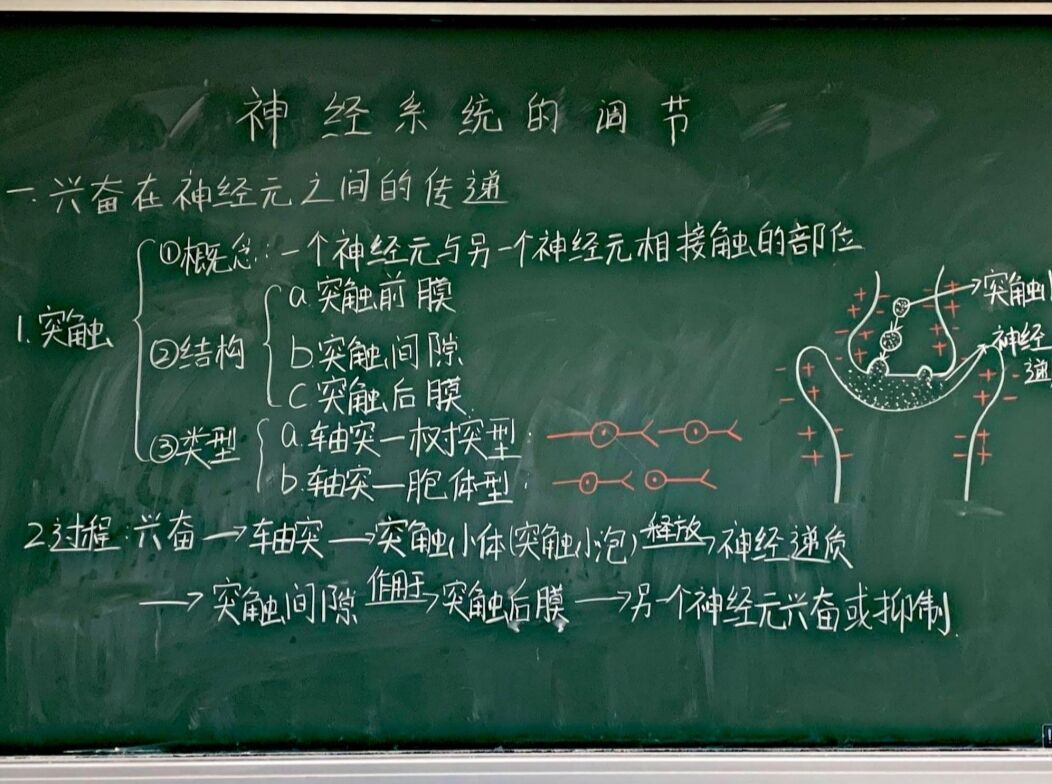 神经系统的调节
一.兴奋在神经元之间的传递
①概念:一个神经元与另一个神经元相接触的部位
1.突触
②结构
a.突触前膜
b.突触间隙
c突触后膜
③类型
a.轴突—树突型:
b.轴突—胞体型:
突触小
神经
递
2过程:兴奋→轴突→突触小体(突触小泡)释放→神经递质
→突触间隙作用于→突触后膜→另一个神经元兴奋或抑制.